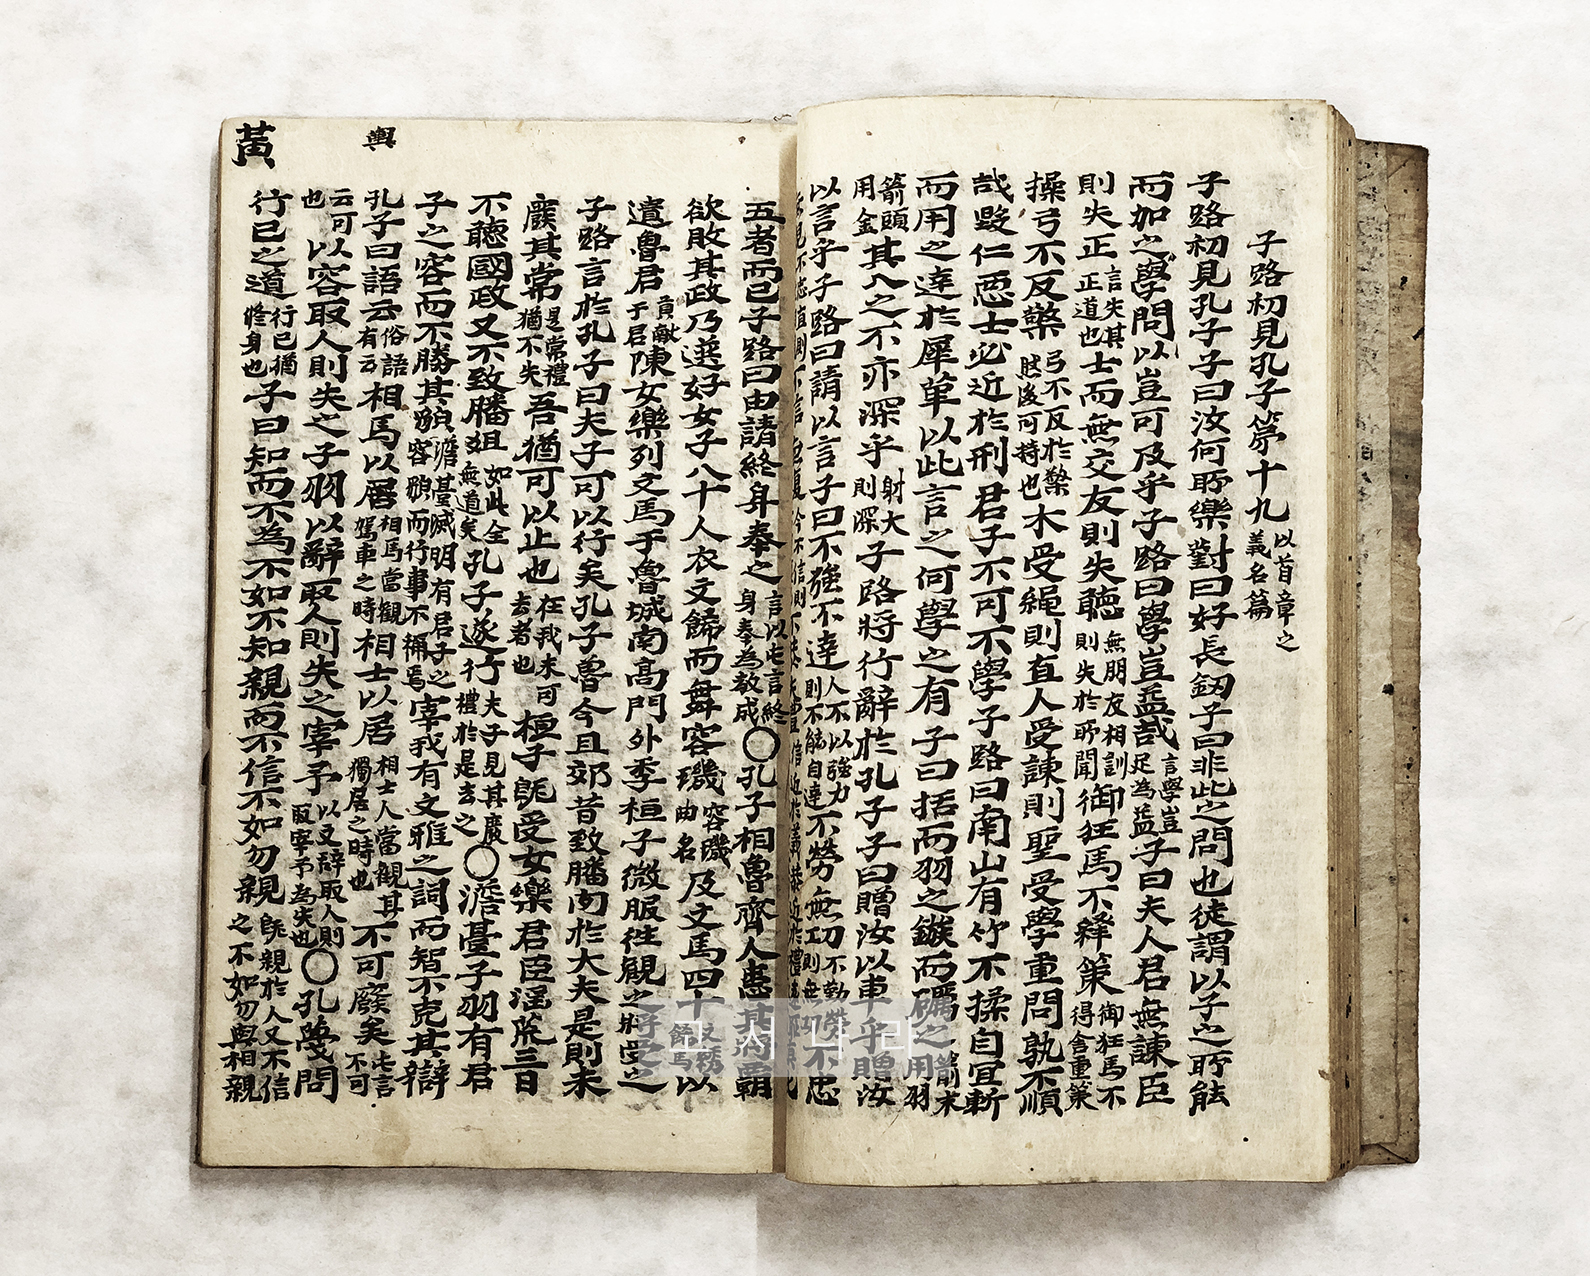 子路初見孔子第十九 以首章之義名篇
子路初見孔子子曰汝何所樂對曰好長劔子曰非此之問也徒謂以子之所能
而加之學問以豈可及乎子路曰學豈益哉 言學豈足為益 子曰夫人君無諫臣
則失正 言失其正道也 士而無交友則失聽 無朋友相訓則失於所聞 御狂馬不釋策 御狂馬不得舍重策
操弓不反檠 弓不反於檠然後可持也 木受繩則直人受諫則聖受學重問孰不順
哉毀仁惡士必近於刑君子不可不學子路曰南山有竹不揉自直斬
而用之達於犀革以此言之何學之有子曰括而羽之鏃而礪之 箭末用羽
箭頭用金 其入之不亦深乎 射大則深 子路將行辭於孔子子曰贈汝以車乎贈汝
以言乎子路曰請以言子曰不強不達 人不以強力則不能自達 不勞無功 不勤勞則無功 不忠
五者而已子路曰由請終身奉之 言以此言終身奉為教成 ○孔子相魯齊人患其將覇
欲敗其政乃選好女子八十人衣文飾而舞容璣 容璣曲名 及文馬四十 文繡飾馬 以
遺魯君 貢獻于君 陳女樂列文馬于魯城南高門外季桓子微服往觀之將受之
子路言於孔子曰夫子可以行矣孔子魯今且郊若致膰肉於大夫是則未
廢其常 是常禮猶不失 吾猶可以止也 在我未可去者也 桓子既受女樂君臣淫荒三日
不聽國政又不致膰俎 如此全無道矣 孔子遂行 夫子見其廢禮於是去之 ○澹臺子羽有君
子之容而不勝其貌 澹臺滅明有君子之容貌而行事不稱焉 宰我有文雅之詞而智不克其辯
孔子曰語云 俗語有云 相馬以居 相馬當觀駕車之時 相士以居 相士人當觀其獨居之時也 不可廢矣 此言不可
云可也 以容取人則失之子羽以辭取人則失之宰予 以文辭取人則取宰予為失也 ○孔篾問
行已之道 行已猶修身也 子曰知而不為不如不知親而不信不如勿親 既親於人又不信之不如勿與相親
輿
黃
고서나라